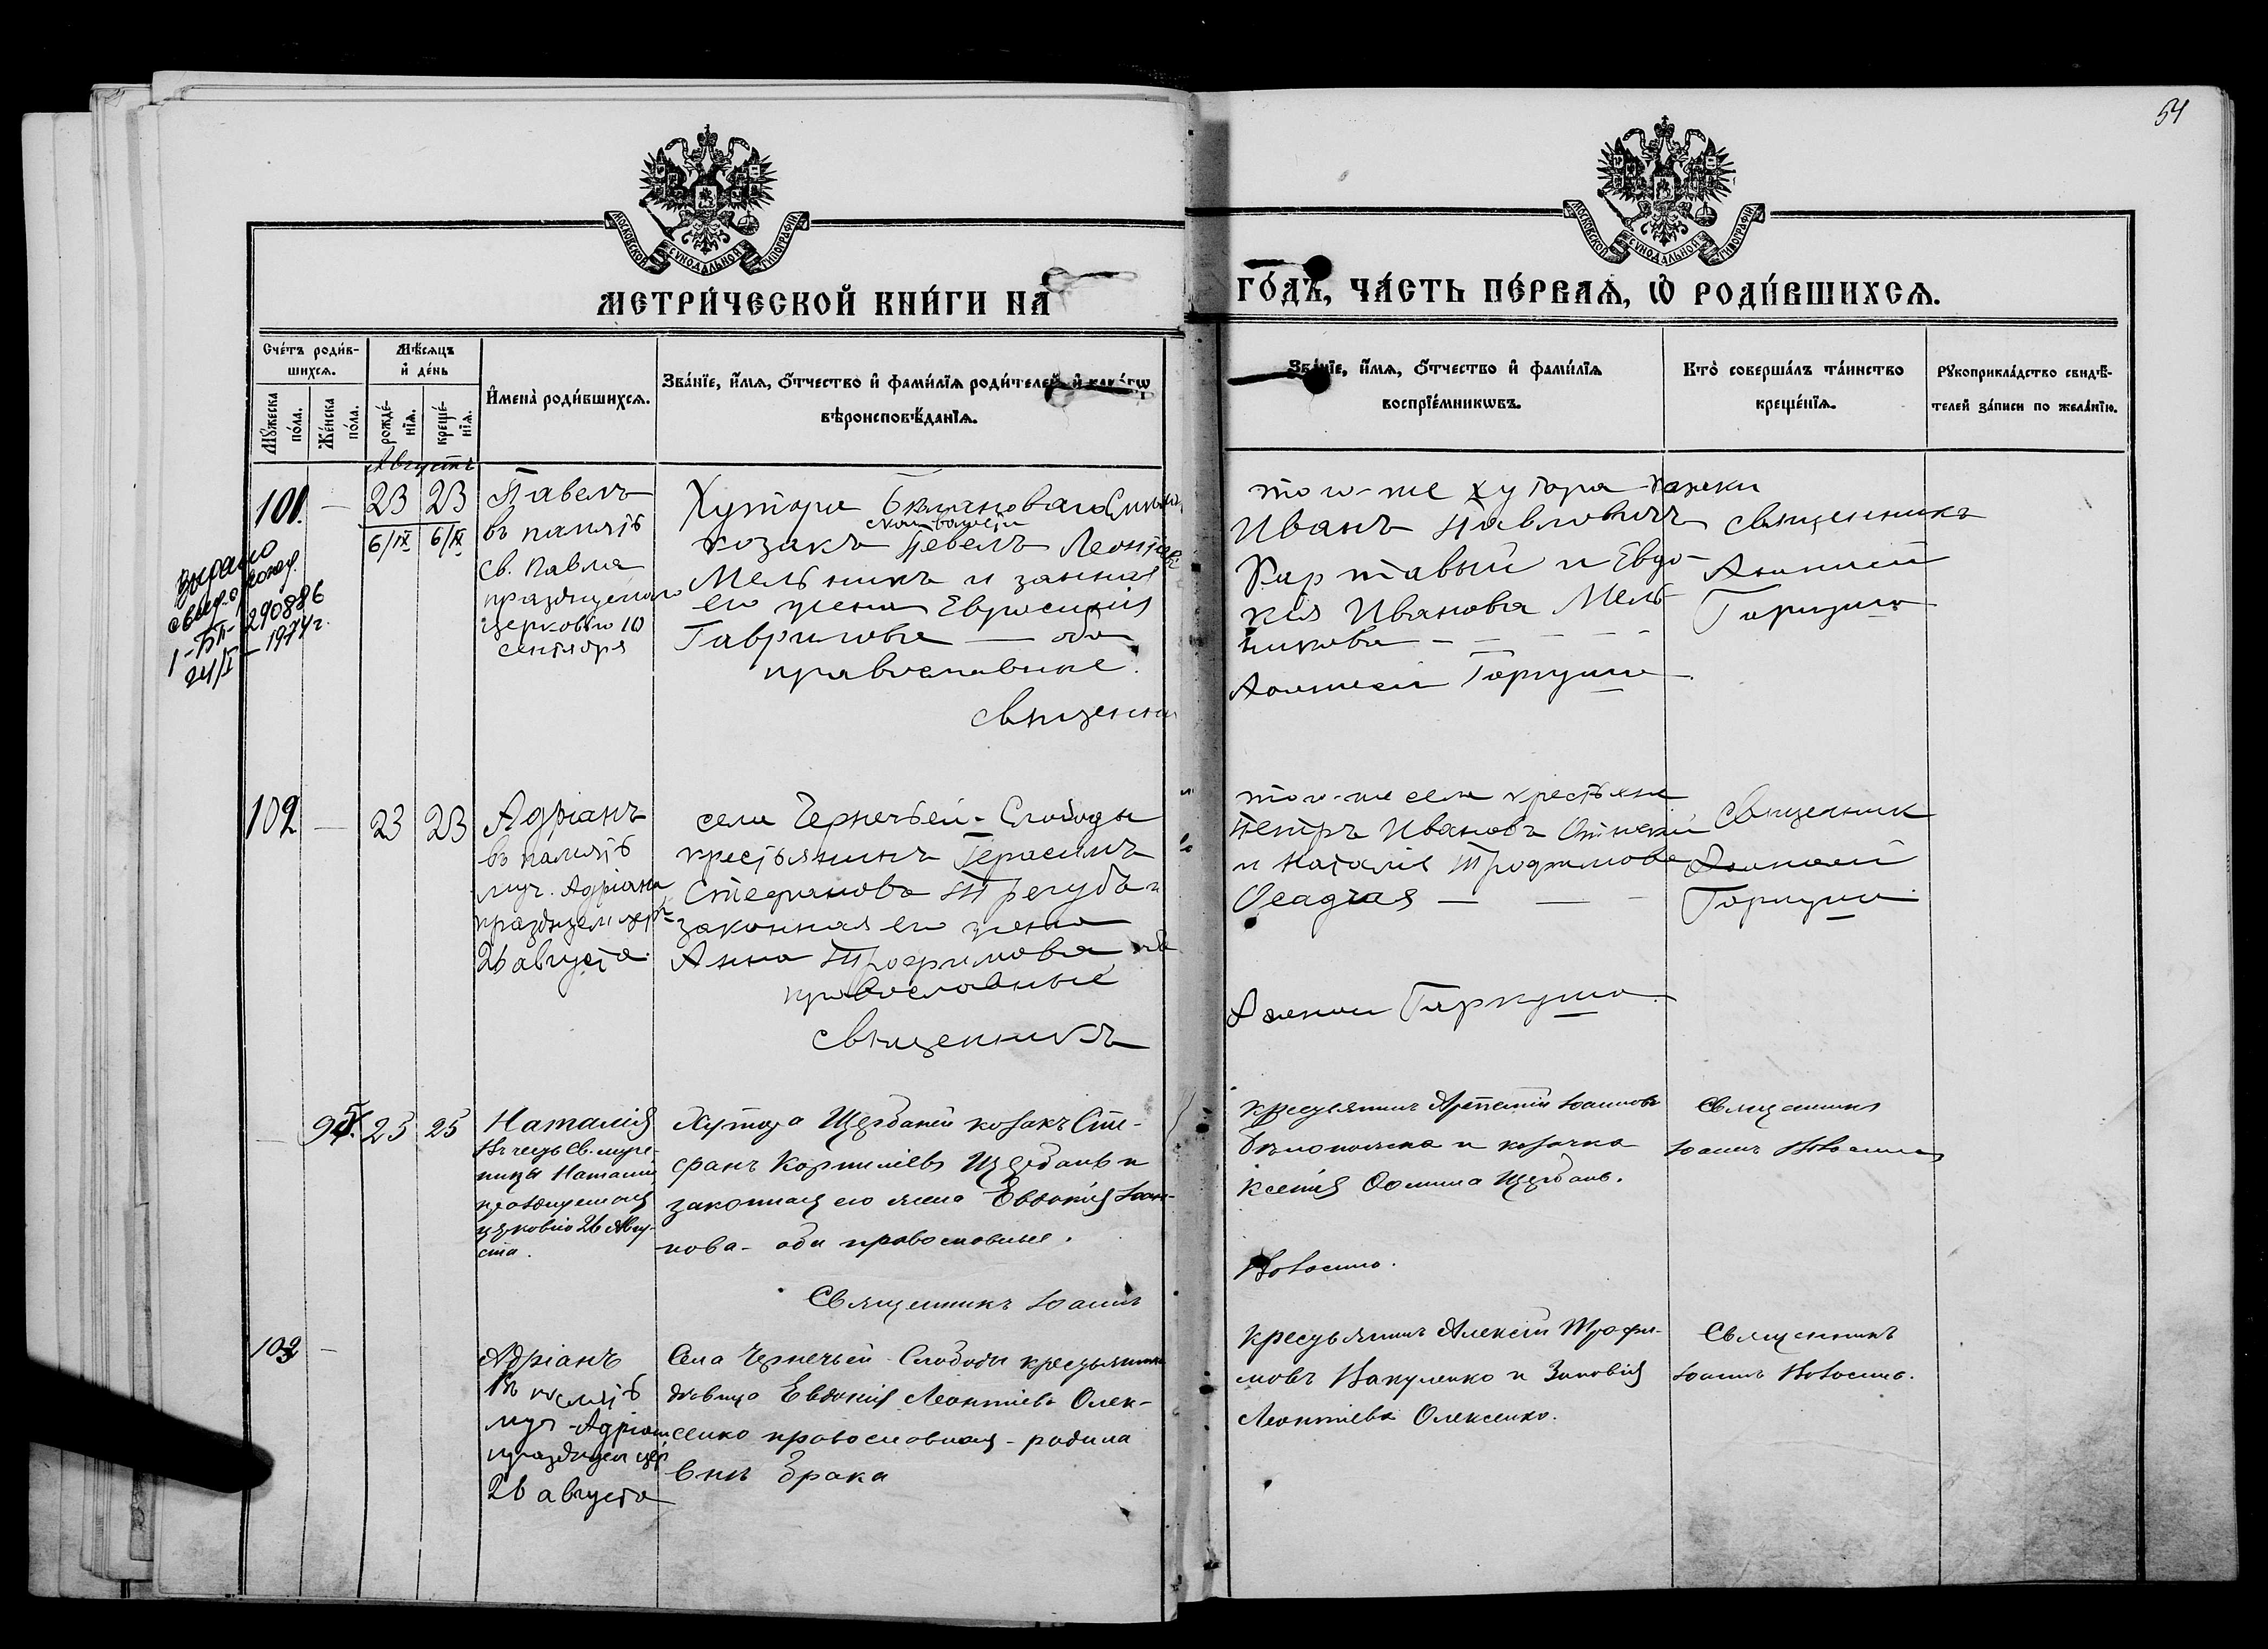 54
МОСКОВСКОЙ СѴНОДАЛЬНОЙ ТИПОГРАФІИ
МОСКОВСКОЙ СѴНОДАЛЬНОЙ ТИПОГРАФІИ
МЕТРИ́ЧЕСКОЙ КНИ́ГИ НА
ГО́ДЪ, ЧА́СТЬ ПЕ́РВАѦ, Ѡ РОДИ́ВШИХСѦ.
Сче́тъ роди́в-
шихсѧ.
Мꙋ́жеска
по́ла.
Же́нска
по́ла.
Мѣ́сѧцъ
и҆ де́нь
рожде́-
нїѧ.
креще́-
нїѧ.
И҆мена̀ роди́вшихсѧ.
Зва́нїе, и҆́мѧ, ѻ҆́тчество и҆ фами́лїѧ роди́телей, и҆ како́гѡ
вѣроисповѣ́данїѧ.
Зва́нїе, и҆́мѧ, ѻ҆́тчество и҆ фами́лїѧ
воспрїе́мникѡвъ.
Кто̀ соверша́лъ та́инство
креще́нїѧ.
Рꙋкоприкла́дство свидѣ́-
телей за́писи по жела́нїю.
Августъ
101. —
23 23
6/IX 6/IX
Павелъ
въ память
св. Павла
празднуемаго
церковью 10
сентября
Выдано
1-БП- 290886
24/I - 1974 г.
Хутора
козакъ Павелъ
Мельникъ и законная
его жена Евфросинія
Гаврилова — оба
православные.
Священник
того-же хутора козаки
Иванъ Павловичъ
и Евдо-
кія Иванова Мель-
никова — — — —
Алексій Гаркуша
священникъ
Алексій
Гаркуша
102 —
23 23
Адріанъ
въ память
муч. Адріана
26 августа
села Чернечьей-Слободы
крестьянинъ Герасимъ
Стефановъ Трегубъ и
законная его жена
Анна Трофимова оба
православные
Священникъ
того-же села крестьяне
Петръ Ивановъ
и Наталія Трофимова
Осадчая — — —
Алексій Гаркуша
Священник
Алексій
Гаркуша
95. 25 25
Наталія
въ честь св. муче-
ницы Наталіи
празднуемой
церковію 26 Авгу-
ста.
Хутора Щербаней козакъ Сте-
фанъ Корнилiевъ Щербань и
законная его жена Евдокія Іоан-
нова - оба православные.
Священникъ Іоаннъ
крестьянинъ Артемій Іоанновъ
и козачка
Ксенія Щербань.
Новосила.
Священникъ
Іоаннъ Новосила
103 —
Адріанъ
въ память
муч. Адріана
26 августа
Села Чернечьей-Слободы крестьянка
дѣвица Евдокія Леонтіева Олек-
сенко православная - родила
внѣ брака
крестьянинъ Алексій Трофи-
мовъ Вакуленко и Зиновія
Леонтіева Олексенко.
Священникъ
Іоаннъ Новосила.